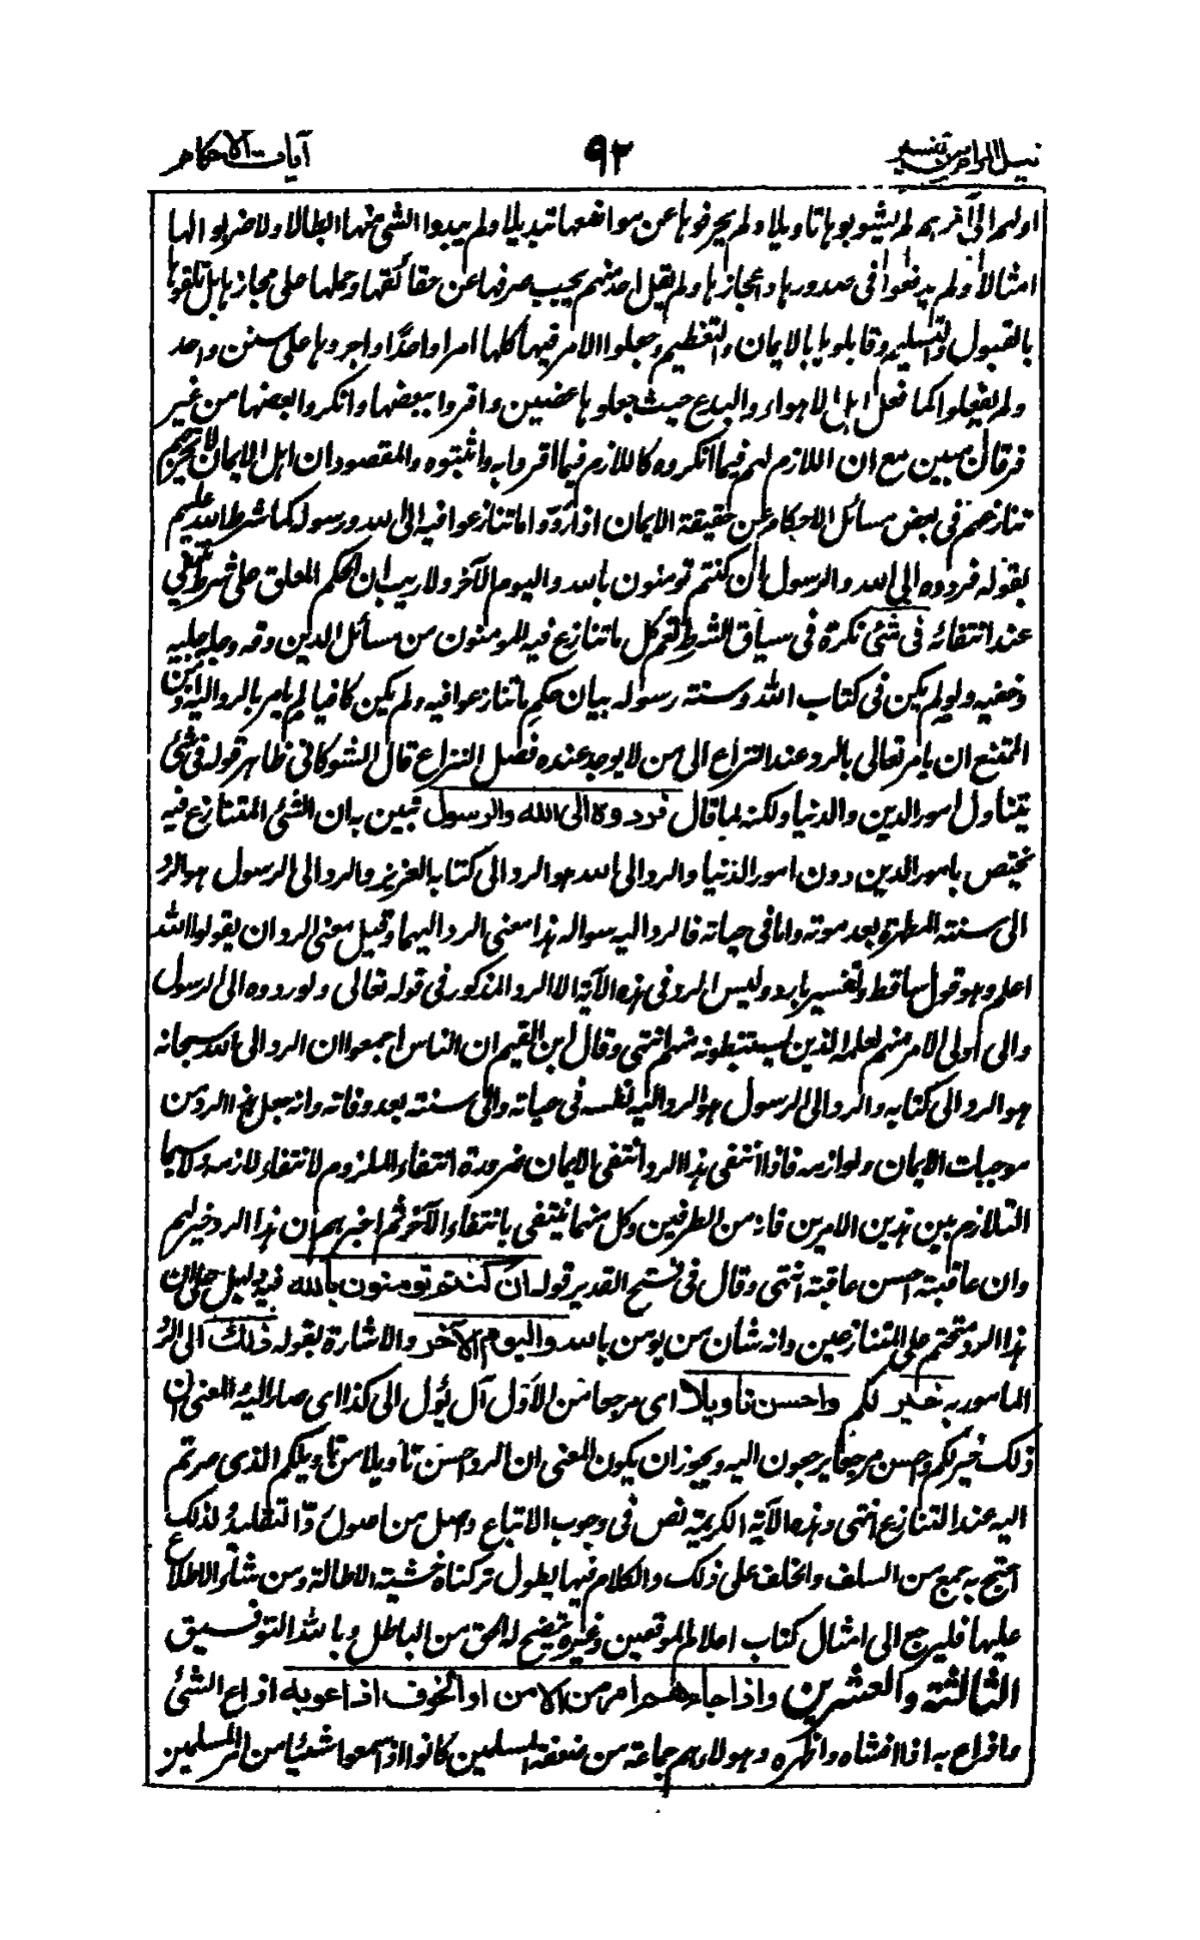 نيل المرام من تفسير ٩٢ آيات الاحكام
اولهم الى آخرهم لم يسوبوها تاويلا ولم يحرفوها عن مواضعها تبديلا ولم يبدوا الشئ منها ابطالا ولا ضربوا لها
امثالا ولم يدفعوا فى صدورها واعجازها ولم يقل احد منهم يجب صرفها عن حقائقها وحملها على مجازها بل تلقوها
بالقبول والتسليم وقابلوها بالايمان والتعظيم وجعلوا الامر فيها كلها امرا واحدًا واجروها على سنن واحد
ولم يفعلوا كما فعل اهل الاهواء والبدع حيث جعلوها عضين واقروا ببعضها وانكروا بعضها من غير
فرقان مبين مع ان اللازم لهم فيما انكروه كاللازم فيما اقروا به واثبتوه والمقصود ان اهل الايمان لا يخرجهم
تنازعهم فى بعض مسائل الاحكام عن حقيقة الايمان اذا ردّوا ما تنازعوا فيه الى الله ورسوله كما شرط الله عليهم
بقوله فردوه الى الله والرسول ان كنتم تومنون بالله واليوم الآخر ولا ريب ان الحكم المعلق على شرط ينتفى
عند انتفائه فى شئ نكرة فى سياق الشرط تعم كل ما تنازع فيه المومنون من مسائل الدين دقه وجله جليه
وخفيه ولو لم يكن فى كتاب الله وسنة رسوله بيان حكم ما تنازعوا فيه ولم يكن كافيا لم يامر بالرد اليه اذ من
الممتنع ان يامر تعالى بالرد عند النزاع الى من لا يوجد عنده فصل النزاع قال الشوكانى ظاهر قوله فى شئ
يتناول امور الدين والدنيا ولكنه لما قال فردوه الى الله والرسول تبين به ان الشئ المتنازع فيه
يختص بامور الدين دون امور الدنيا والرد الى الله هو الرد الى كتابه العزيز والرد الى الرسول هو الرد
الى سنته المطهرة بعد موته واما فى حياته فالرد اليه سواله هذا معنى الرد اليهما وقيل معنى الرد ان يقولوا الله
اعلم وهو قول ساقط وتفسير بارد وليس الرد فى هذه الآية الا الرد المذكور فى قوله تعالى ولو ردوه الى الرسول
والى اولى الامر منهم لعلمه الذين يستنبطونه منهم انتهى وقال ابن القيم ان الناس اجمعوا ان الرد الى الله سبحانه
هو الرد الى كتابه والرد الى الرسول هو الرد اليه نفسه فى حياته والى سنته بعد وفاته وانه جعل هذا الرد من
موجبات الايمان ولوازمه فاذا انتفى هذا الرد انتفى الايمان ضرورة انتفاء الملزوم لانتفاء لازمه ولا سيما
التلازم بين هذين الامرين فانه من الطرفين وكل منهما ينتفى بانتفاء الآخر ثم اخبرهم ان هذا الرد خير لهم
وان عاقبته احسن عاقبة انتهى وقال فى فتح القدير قوله ان كنتم تومنون بالله فيه دليل على ان
هذا الرد متحتم على المتنازعين وانه شان من يومن بالله واليوم الآخر والاشارة بقوله ذلك الى الرد
المامور به خير لكم واحسن تاويلا اى مرجعا من الأول آل يؤل الى كذا اى صار اليه المعنى ان
ذلك خير لكم واحسن مرجعا يرجعون اليه ويجوز ان يكون المعنى ان الرد احسن تاويلا من تاويلكم الذى صرتم
اليه عند التنازع انتهى وهذه الآية الكريمة نص فى وجوب الاتباع واصل من اصول ردّ التقليد لذلك
احتج به جمع من السلف والخلف على ذلك والكلام فيها يطول تركناه خشية الاطالة ومن شاء الاطلاع
عليها فليرجع الى امثال كتاب اعلام الموقعين وغيره يتضح له الحق من الباطل وبالله التوفيق
الثالثة والعشرين واذا جاءهم امر من الامن او الخوف اذاعوا به اذاع الشئ
واذاع به اذا افشاه واظهره وهولاء هم جماعة من ضعفة المسلمين كانوا اذا سمعوا شيئا من امر المسلمين